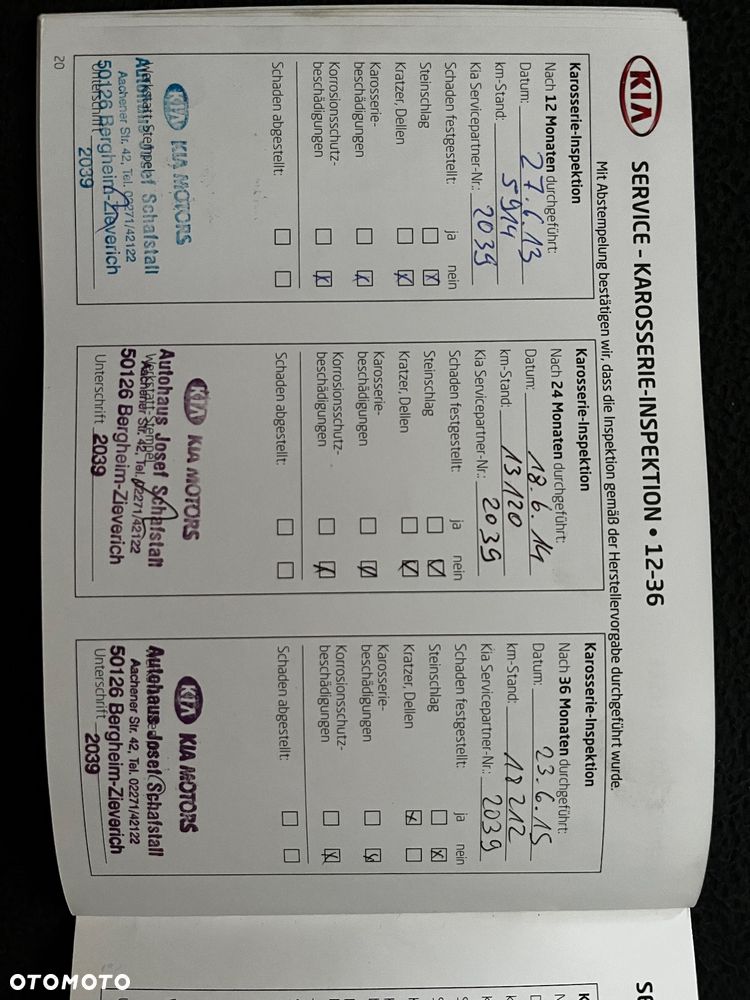 KIA
SERVICE – KAROSSERIE-INSPEKTION • 12-36
Mit Abstempelung bestätigen wir, dass die Inspektion gemäß der Herstellervorgabe durchgeführt wurde.
Karosserie-Inspektion
Nach 12 Monaten durchgeführt:
Datum: 27.6.13
km-Stand: 5914
Kia Servicepartner-Nr.: 2039
Schaden festgestellt: ja nein
Steinschlag
Kratzer, Dellen
Karosserie-
beschädigungen
Korrosionsschutz-
beschädigungen
Schaden abgestellt:
KIA KIA MOTORS
Werkstatt-Stempel
Autohaus Josef Schafstall
Aachener Str. 42, Tel. 02271/42122
50126 Bergheim-Zieverich
Unterschrift 2039
Karosserie-Inspektion
Nach 24 Monaten durchgeführt:
Datum: 18.6.14
km-Stand: 13120
Kia Servicepartner-Nr.: 2039
Schaden festgestellt: ja nein
Steinschlag
Kratzer, Dellen
Karosserie-
beschädigungen
Korrosionsschutz-
beschädigungen
Schaden abgestellt:
KIA KIA MOTORS
Autohaus Josef Schafstall
Werkstatt-Stempel
Aachener Str. 42, Tel. 02271/42122
50126 Bergheim-Zieverich
Unterschrift 2039
Karosserie-Inspektion
Nach 36 Monaten durchgeführt:
Datum: 23.6.15
km-Stand: 18212
Kia Servicepartner-Nr.: 2039
Schaden festgestellt: ja nein
Steinschlag
Kratzer, Dellen
Karosserie-
beschädigungen
Korrosionsschutz-
beschädigungen
Schaden abgestellt:
KIA KIA MOTORS
Autohaus Josef Schafstall
Aachener Str. 42, Tel. 02271/42122
50126 Bergheim-Zieverich
Unterschrift 2039
20
SE
OTOMOTO